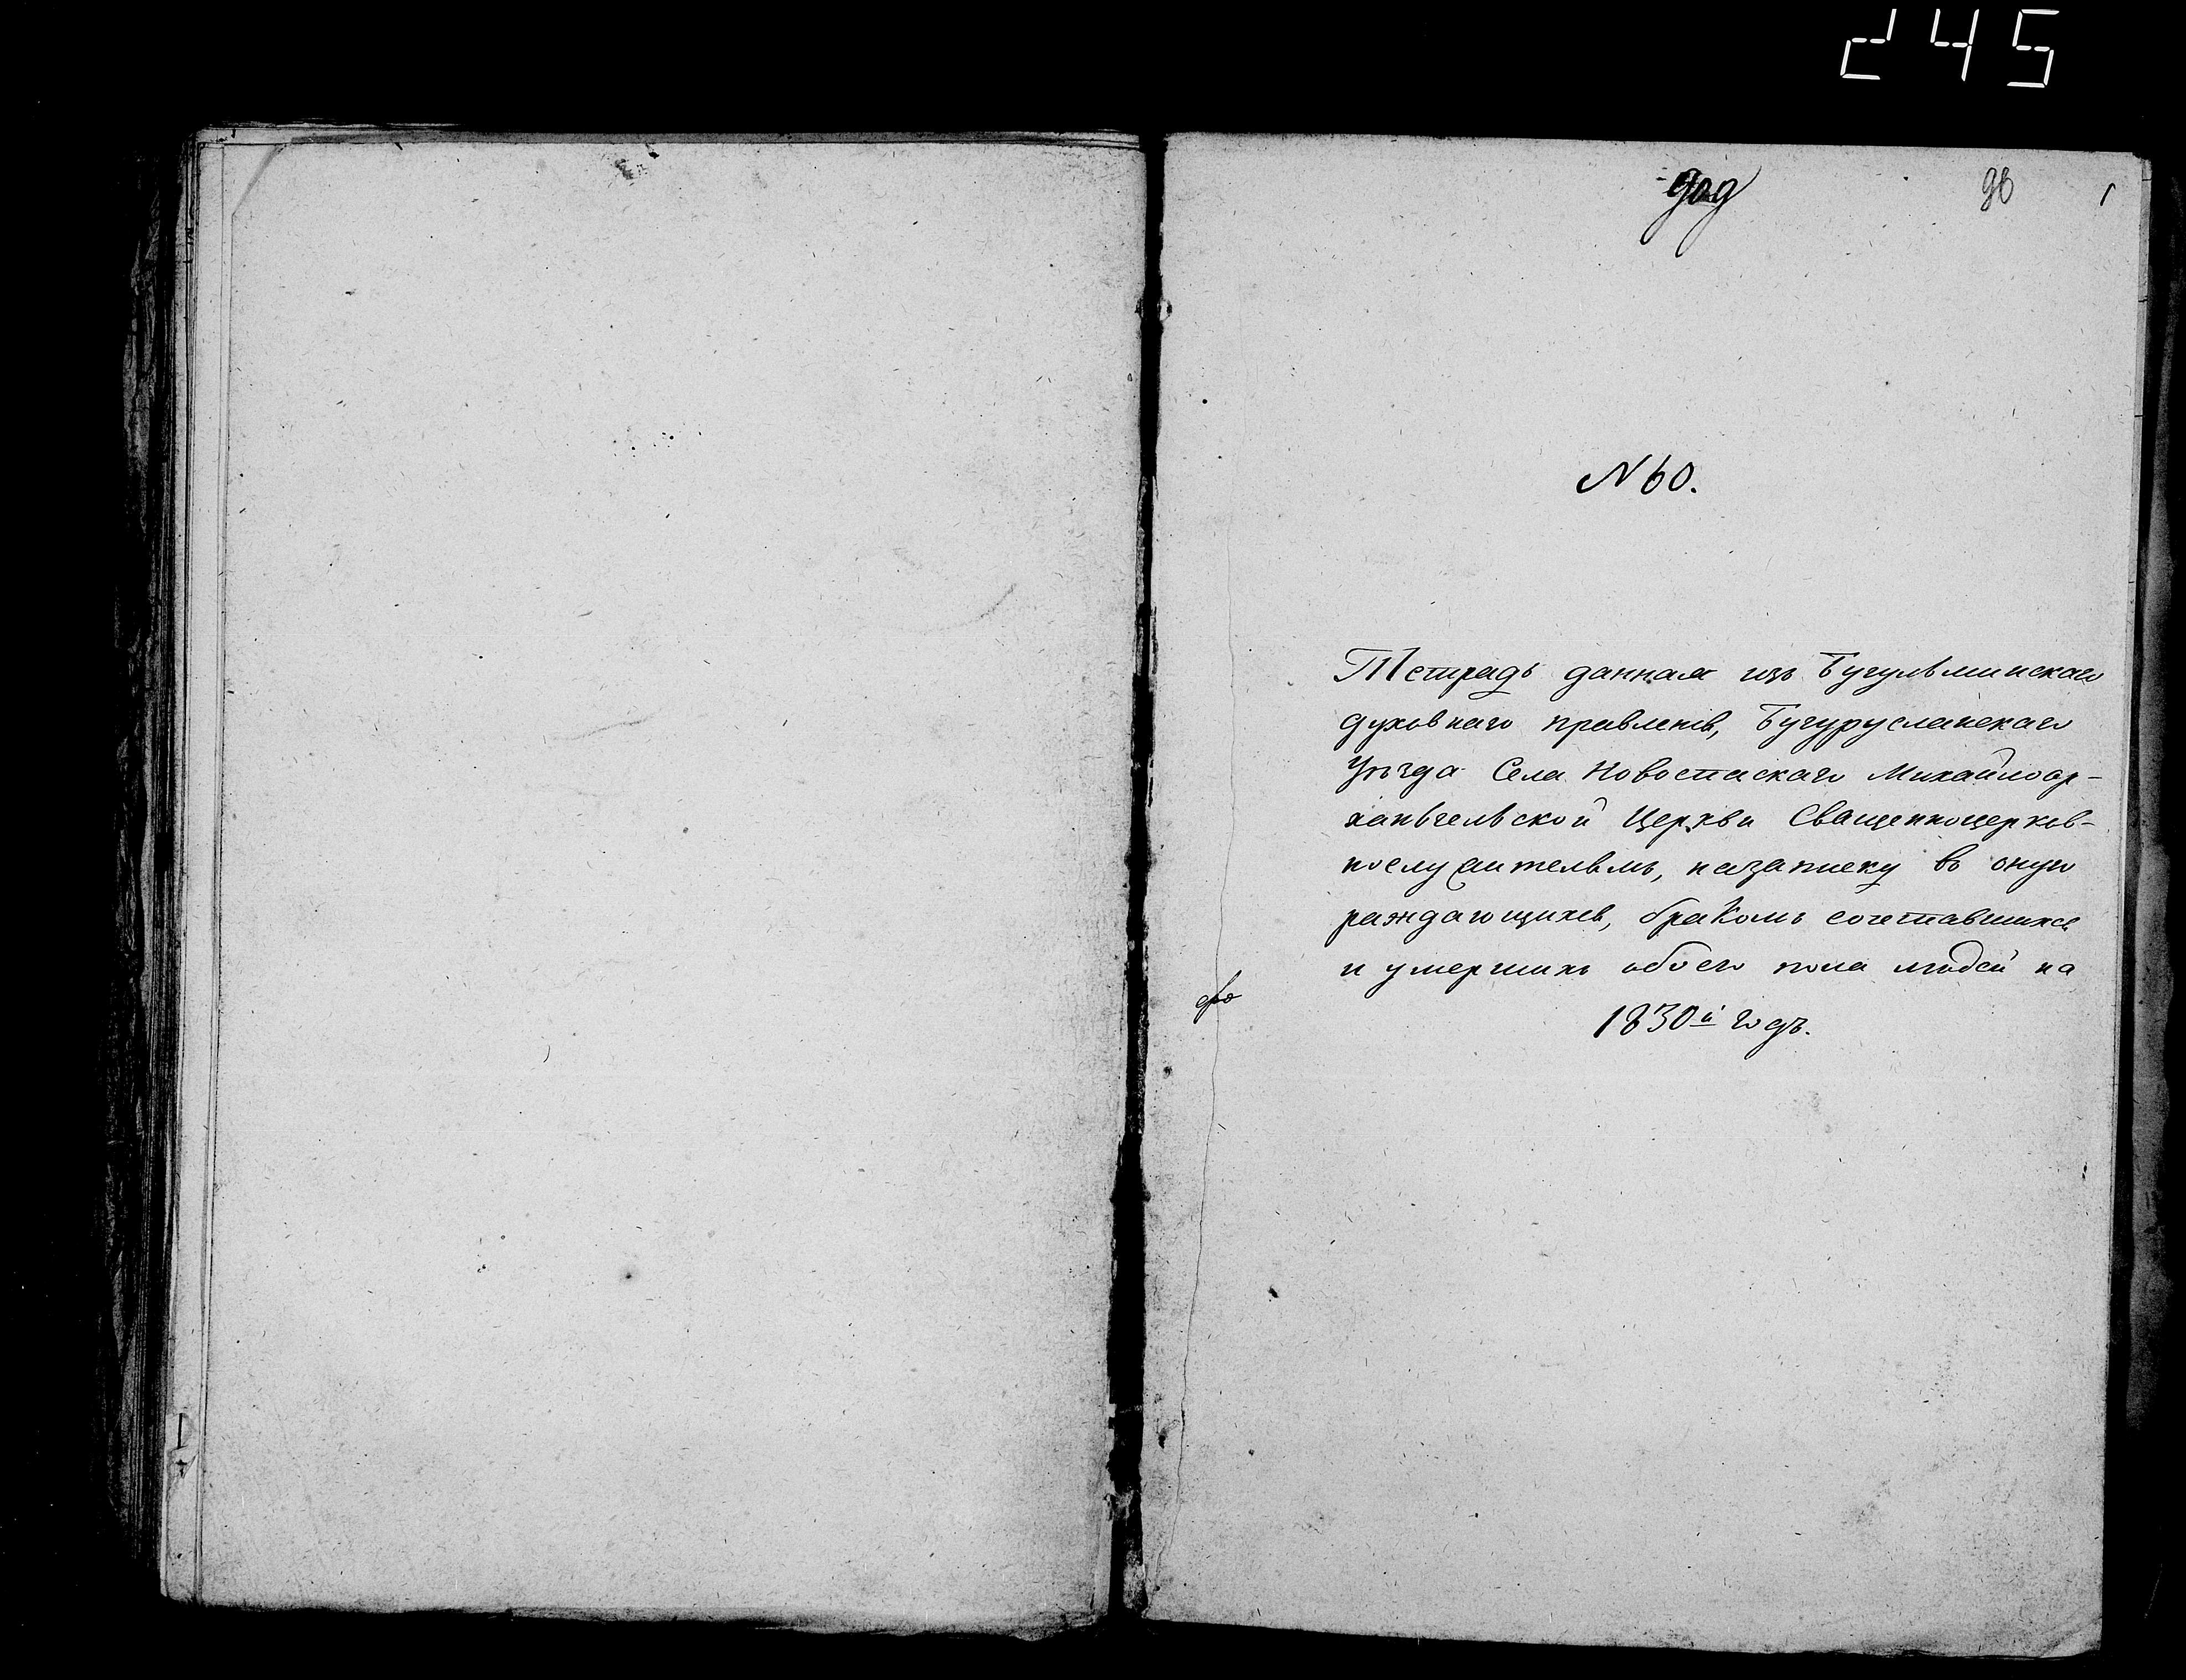 245
98
1
N 60.
Тетрадь данная изъ Бугульминскаго
духовнаго правленія, Бугурусланскаго
Уѣзда Села Новоспаскаго Михайлоар-
хангельской Церкви Священноцерков-
нослужительмъ, назаписку въ оную
раждающихся, бракомъ сочетавшихся
и умершихъ обоего пола людей на
1830й годъ.